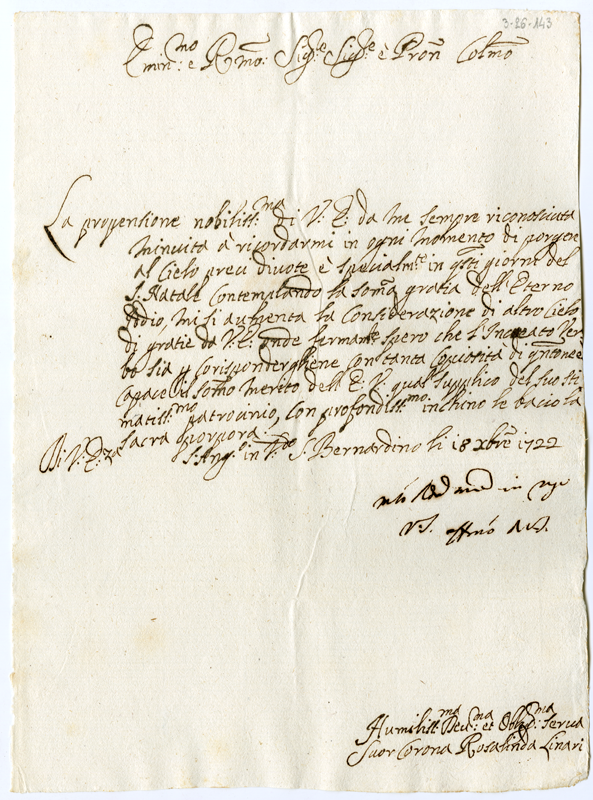 3-26-143
Emin:mo e Rmo: Sigre Sigre è Pron Colmo
La propensione nobiliss:ma di V: E: da me sempre riconosciuta
m'invita à ricordarmi in ogni momento di porgere
al Cielo preci divote è specialmte in qsti giorni del
S: Natale Contemplando la soma gratia dell'Eterno
Iddio, mi si aumenta la Considerazione di altro Cielo
di gratie da V: E: onde fermamte spero che l'Increato Ver
bo sia p Corisponderghene con tanta Copiosità di
Capace il somo merito dell'E: V: qual supplico del suo sti
matiss:mo patrocinio, con profondiss:mo inchino le bacio la
sacra porpora.
Di V: E: za S: Ang: in S: Bernardino li 18 xbre 1722
Humiliss:ma Deu:ma et Obb:ma Serva
Suor Corona Rosalinda Linari